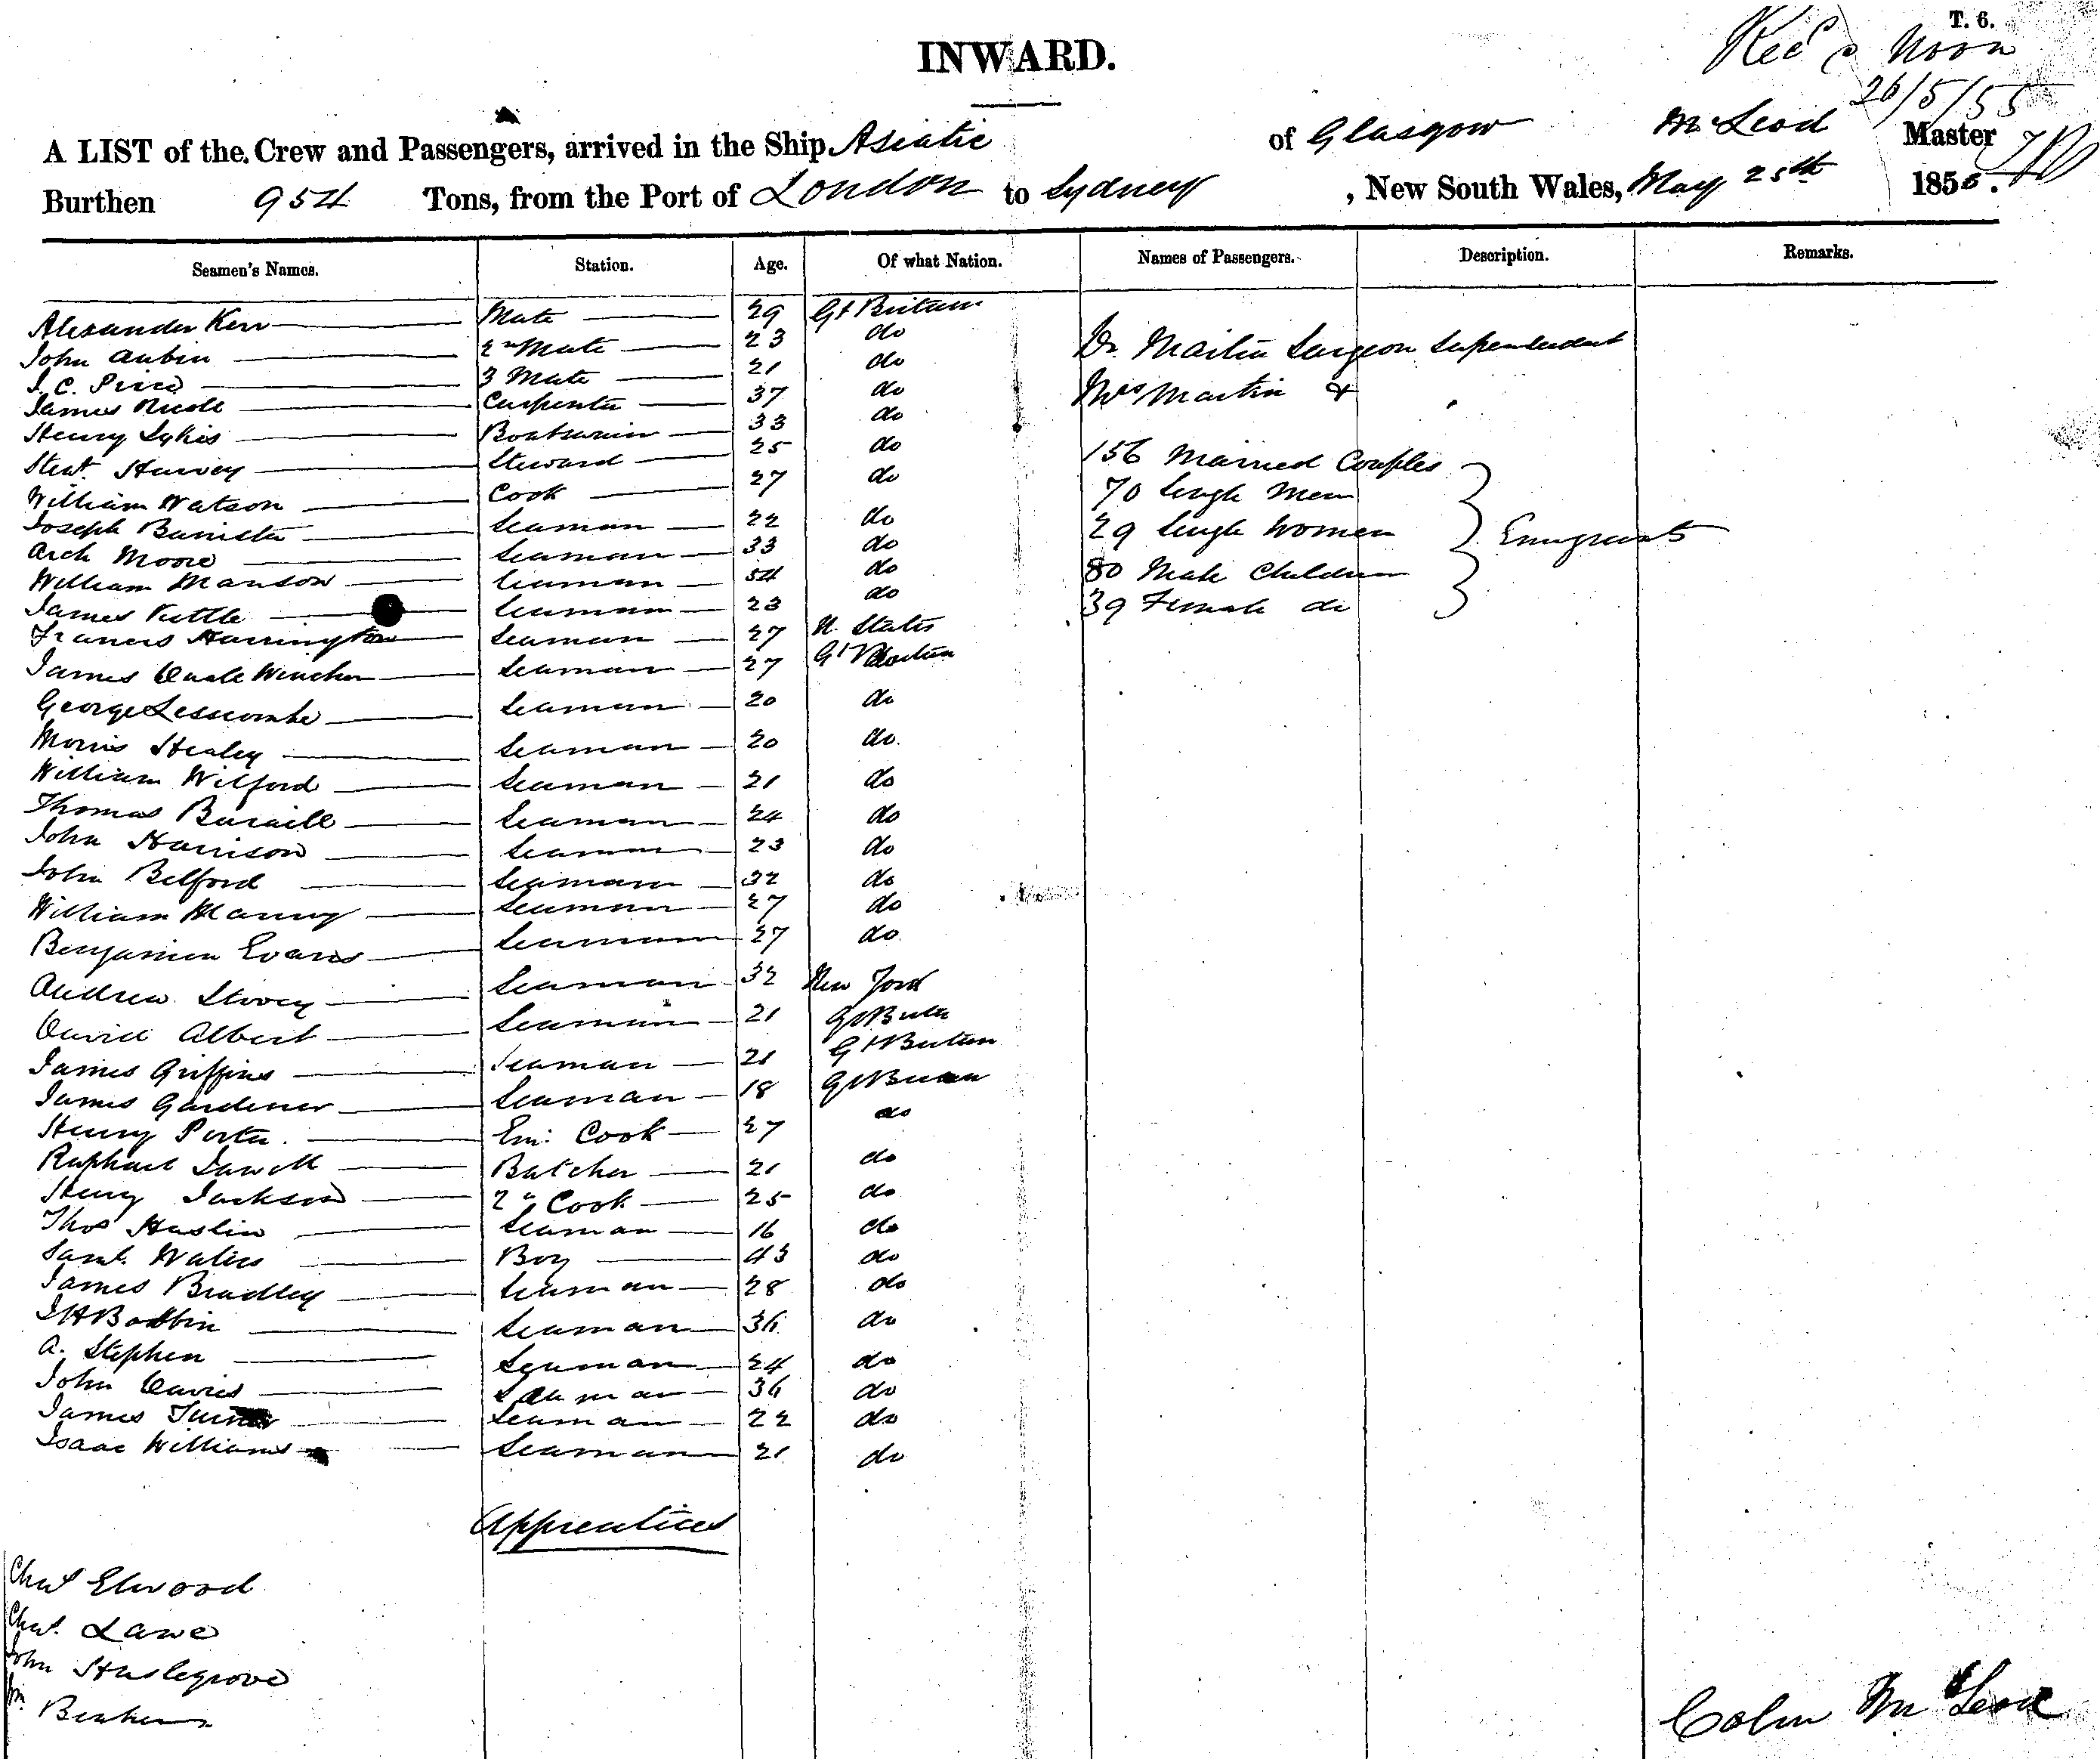 T. 6.
Recd Noon
26/5/55
INWARD.
A LIST of the Crew and Passengers, arrived in the Ship Asiatic of Glasgow McLeod Master
Burthen 954 Tons, from the Port of London to Sydney, New South Wales, May 25th 1855.
Seamen's Names. Station. Age. Of what Nation. Names of Passengers. Description. Remarks.
Alexander Kerr Mate 29 Gt Britain
John Aubin 2nd Mate 23 do
J. C. 3 Mate 21 do
James Nicoll Carpenter 37 do
Henry Sykes Boatswain 33 do
Stewt. Harvey Steward 25 do
William Watson Cook 27 do
Joseph Banister Seaman 22 do
Arch Moore Seaman 33 do
William Manson Seaman 54 do
James Tuttle Seaman 23 do
Francis Harrington Seaman 27 U. States
James Seaman 27 Gt Britain
George Lesscombe Seaman 20 do
Morris Healey Seaman 20 do.
William Wilford Seaman 21 do
Thomas Seaman 24 do
John Harrison Seaman 23 do
John Belford Seaman 32 do
William Seaman 27 do
Benjamin Evans Seaman 27 do
Andrew Storey Seaman 32 New York
David Albert Seaman 21 Gt Britn
James Griffins Seaman 21 Gt Britain
James Gardener Seaman 18 Gt Britain
Henry Porter. Em: Cook 27 do
Raphael Butcher 21 do
Henry Jackson 2nd Cook 25 do
Thos Haslin Seaman 16 do
Saml. Waters Boy 43 do
James Bradley Seaman 28 do
Seaman 36 do
A. Stephen Seaman 24 do
John Davies Seaman 36 do
James Turner Seaman 22 do
Isaac Williams Seaman 21 do
Apprentices
Chas Elwood
Chas. Lawe
John Haslegrove
Wm.
Dr. Martin Surgeon Superintendent
Mrs Martin &
156 Married Couples
70 Single Men
29 Single Women
80 Male Children
39 Female do
Emigrants
Colin McLeod